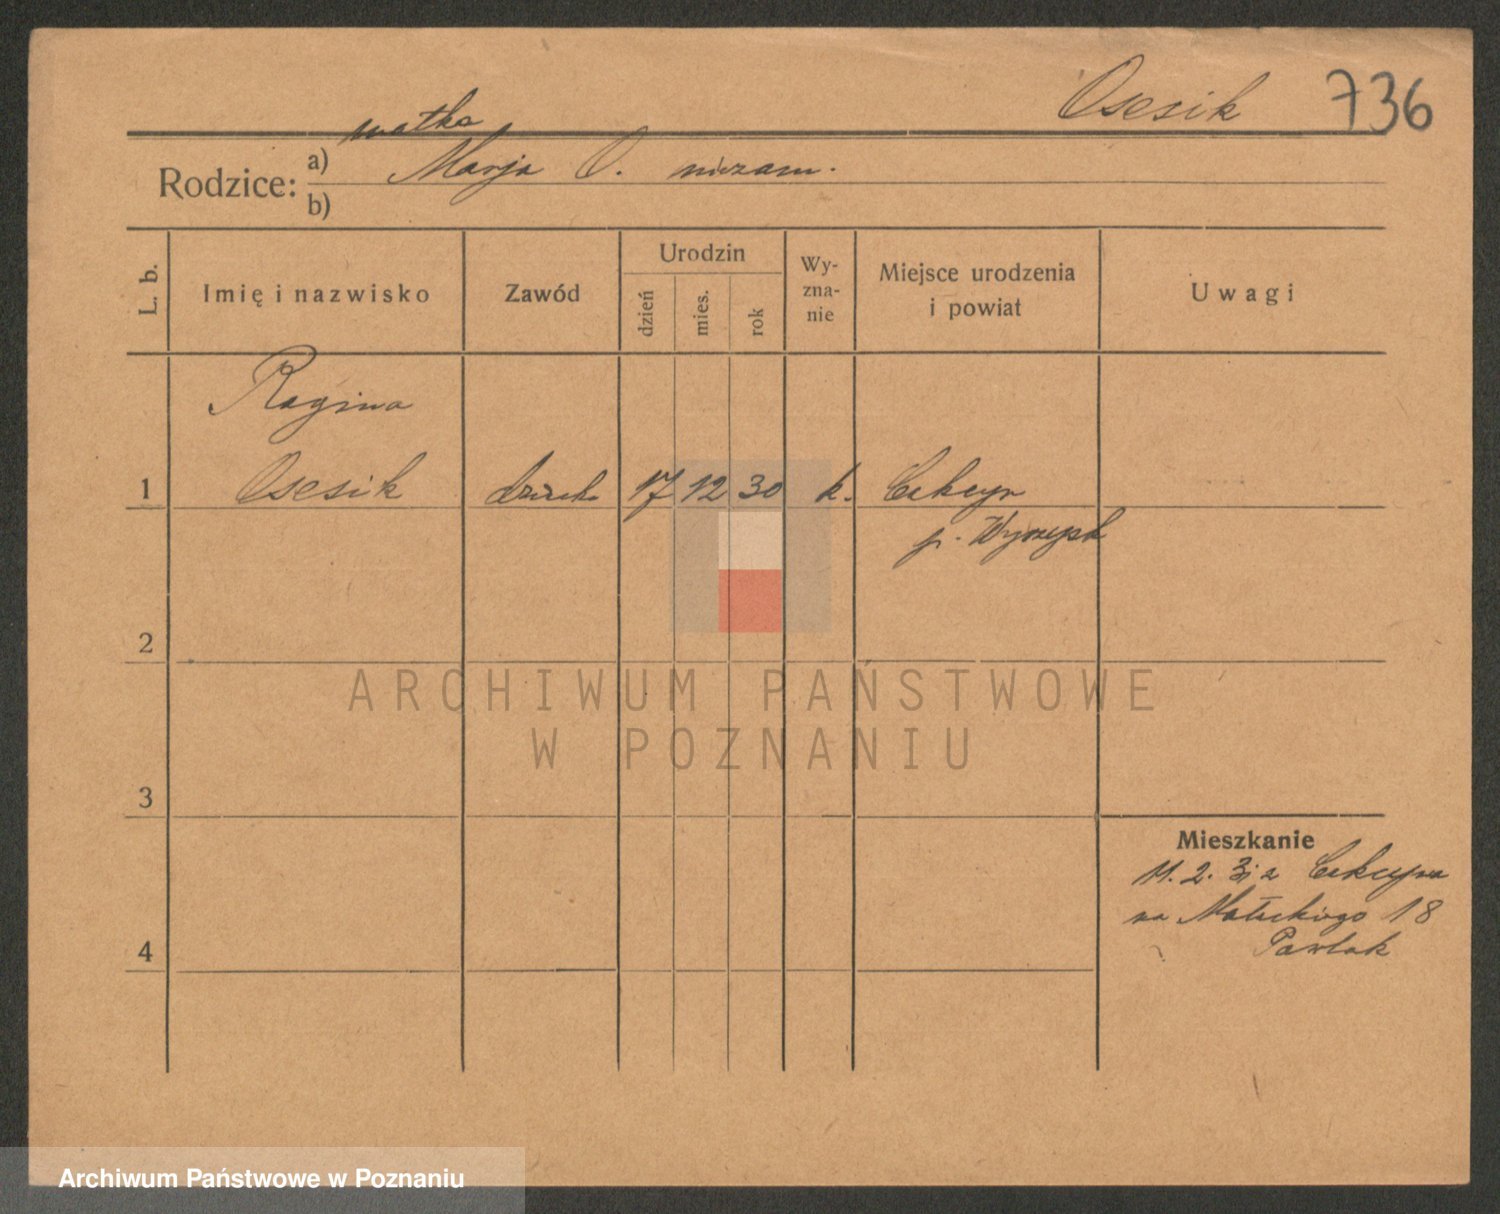 Osesik 736
matka
Rodzice: a) Marja O. niezam.
b)
L. b. Imię i nazwisko Zawód Urodzin dzień mies. rok Wyznanie Miejsce urodzenia i powiat Uwagi
Regina
1 Osesik 17 12 30 k. Cekcyn
p. Wyrzysk
2
ARCHIWUM PAŃSTWOWE
W POZNANIU
3
Mieszkanie
11. 2. 31 z
na Małeckiego 18
4 Pawlak
Archiwum Państwowe w Poznaniu